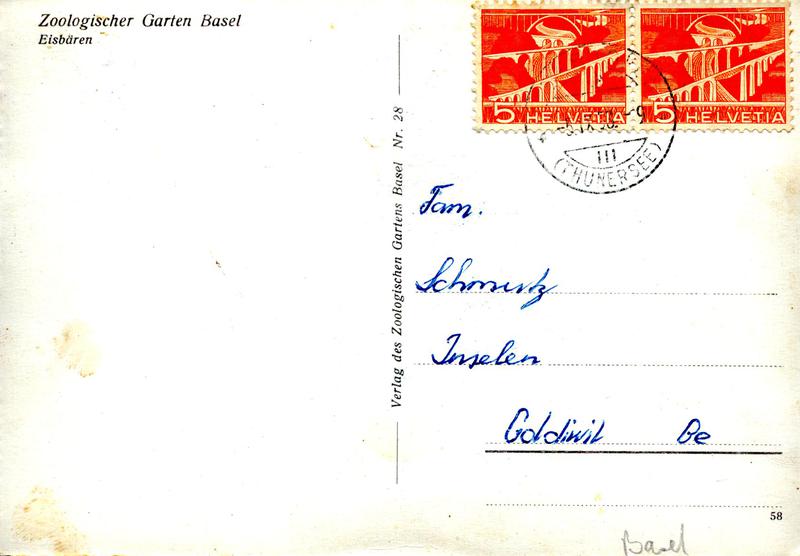 Zoologischer Garten Basel
Eisbären
Verlag des Zoologischen Gartens Basel Nr. 28
5 HELVETIA
5 HELVETIA
III
(THUNERSEE)
Fam.
Schmutz
Inselen
Goldiwil Be
58
Basel